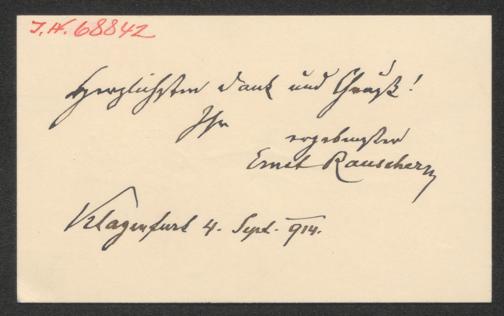 J.N. 68842
Herzlichsten Dank und Gruß!
Ihr
ergebenster
Ernst Rauscher
Klagenfurt 4. Sept. 914.